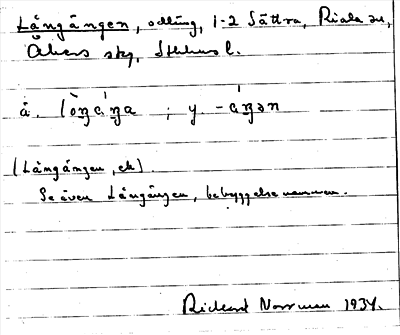 Långängen, odling, 1-2 Sättra, Riala sn,
Åkers skg, Sthlms l.
ä. lòŋäŋa ; y -äŋən
(Långängen, ek).
Se även Långängen, bebyggelsenamnen.
Rickard Norrman 1934.